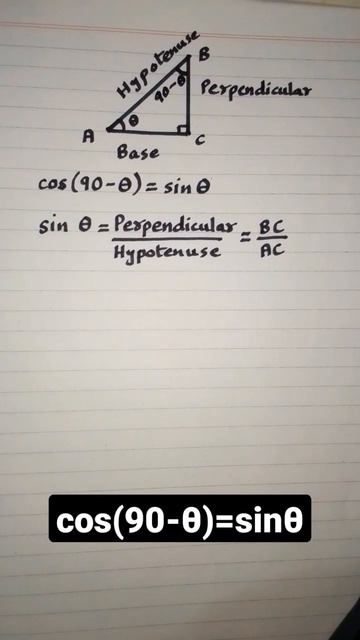 Hypotenuse
B
90-θ
Perpendicular
A
θ
C
Base
cos(90-θ) = sin θ
sin θ = Perpendicular / Hypotenuse = BC / AC
cos(90-θ)=sinθ